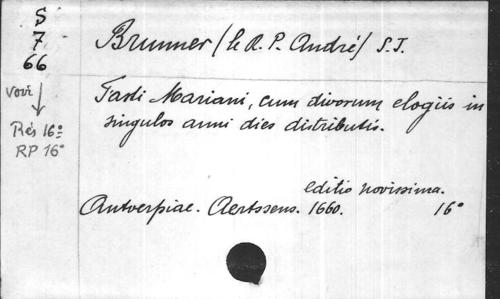 S
7
66
voir
Rés 16º
RP 16º
Brunner (le R. P. André) S. J.
Fasti Mariani, cum divorum elogiis in
singulos anni dies distributis.
editio novissima.
Antverpiae. Aertssens. 1660. 16º